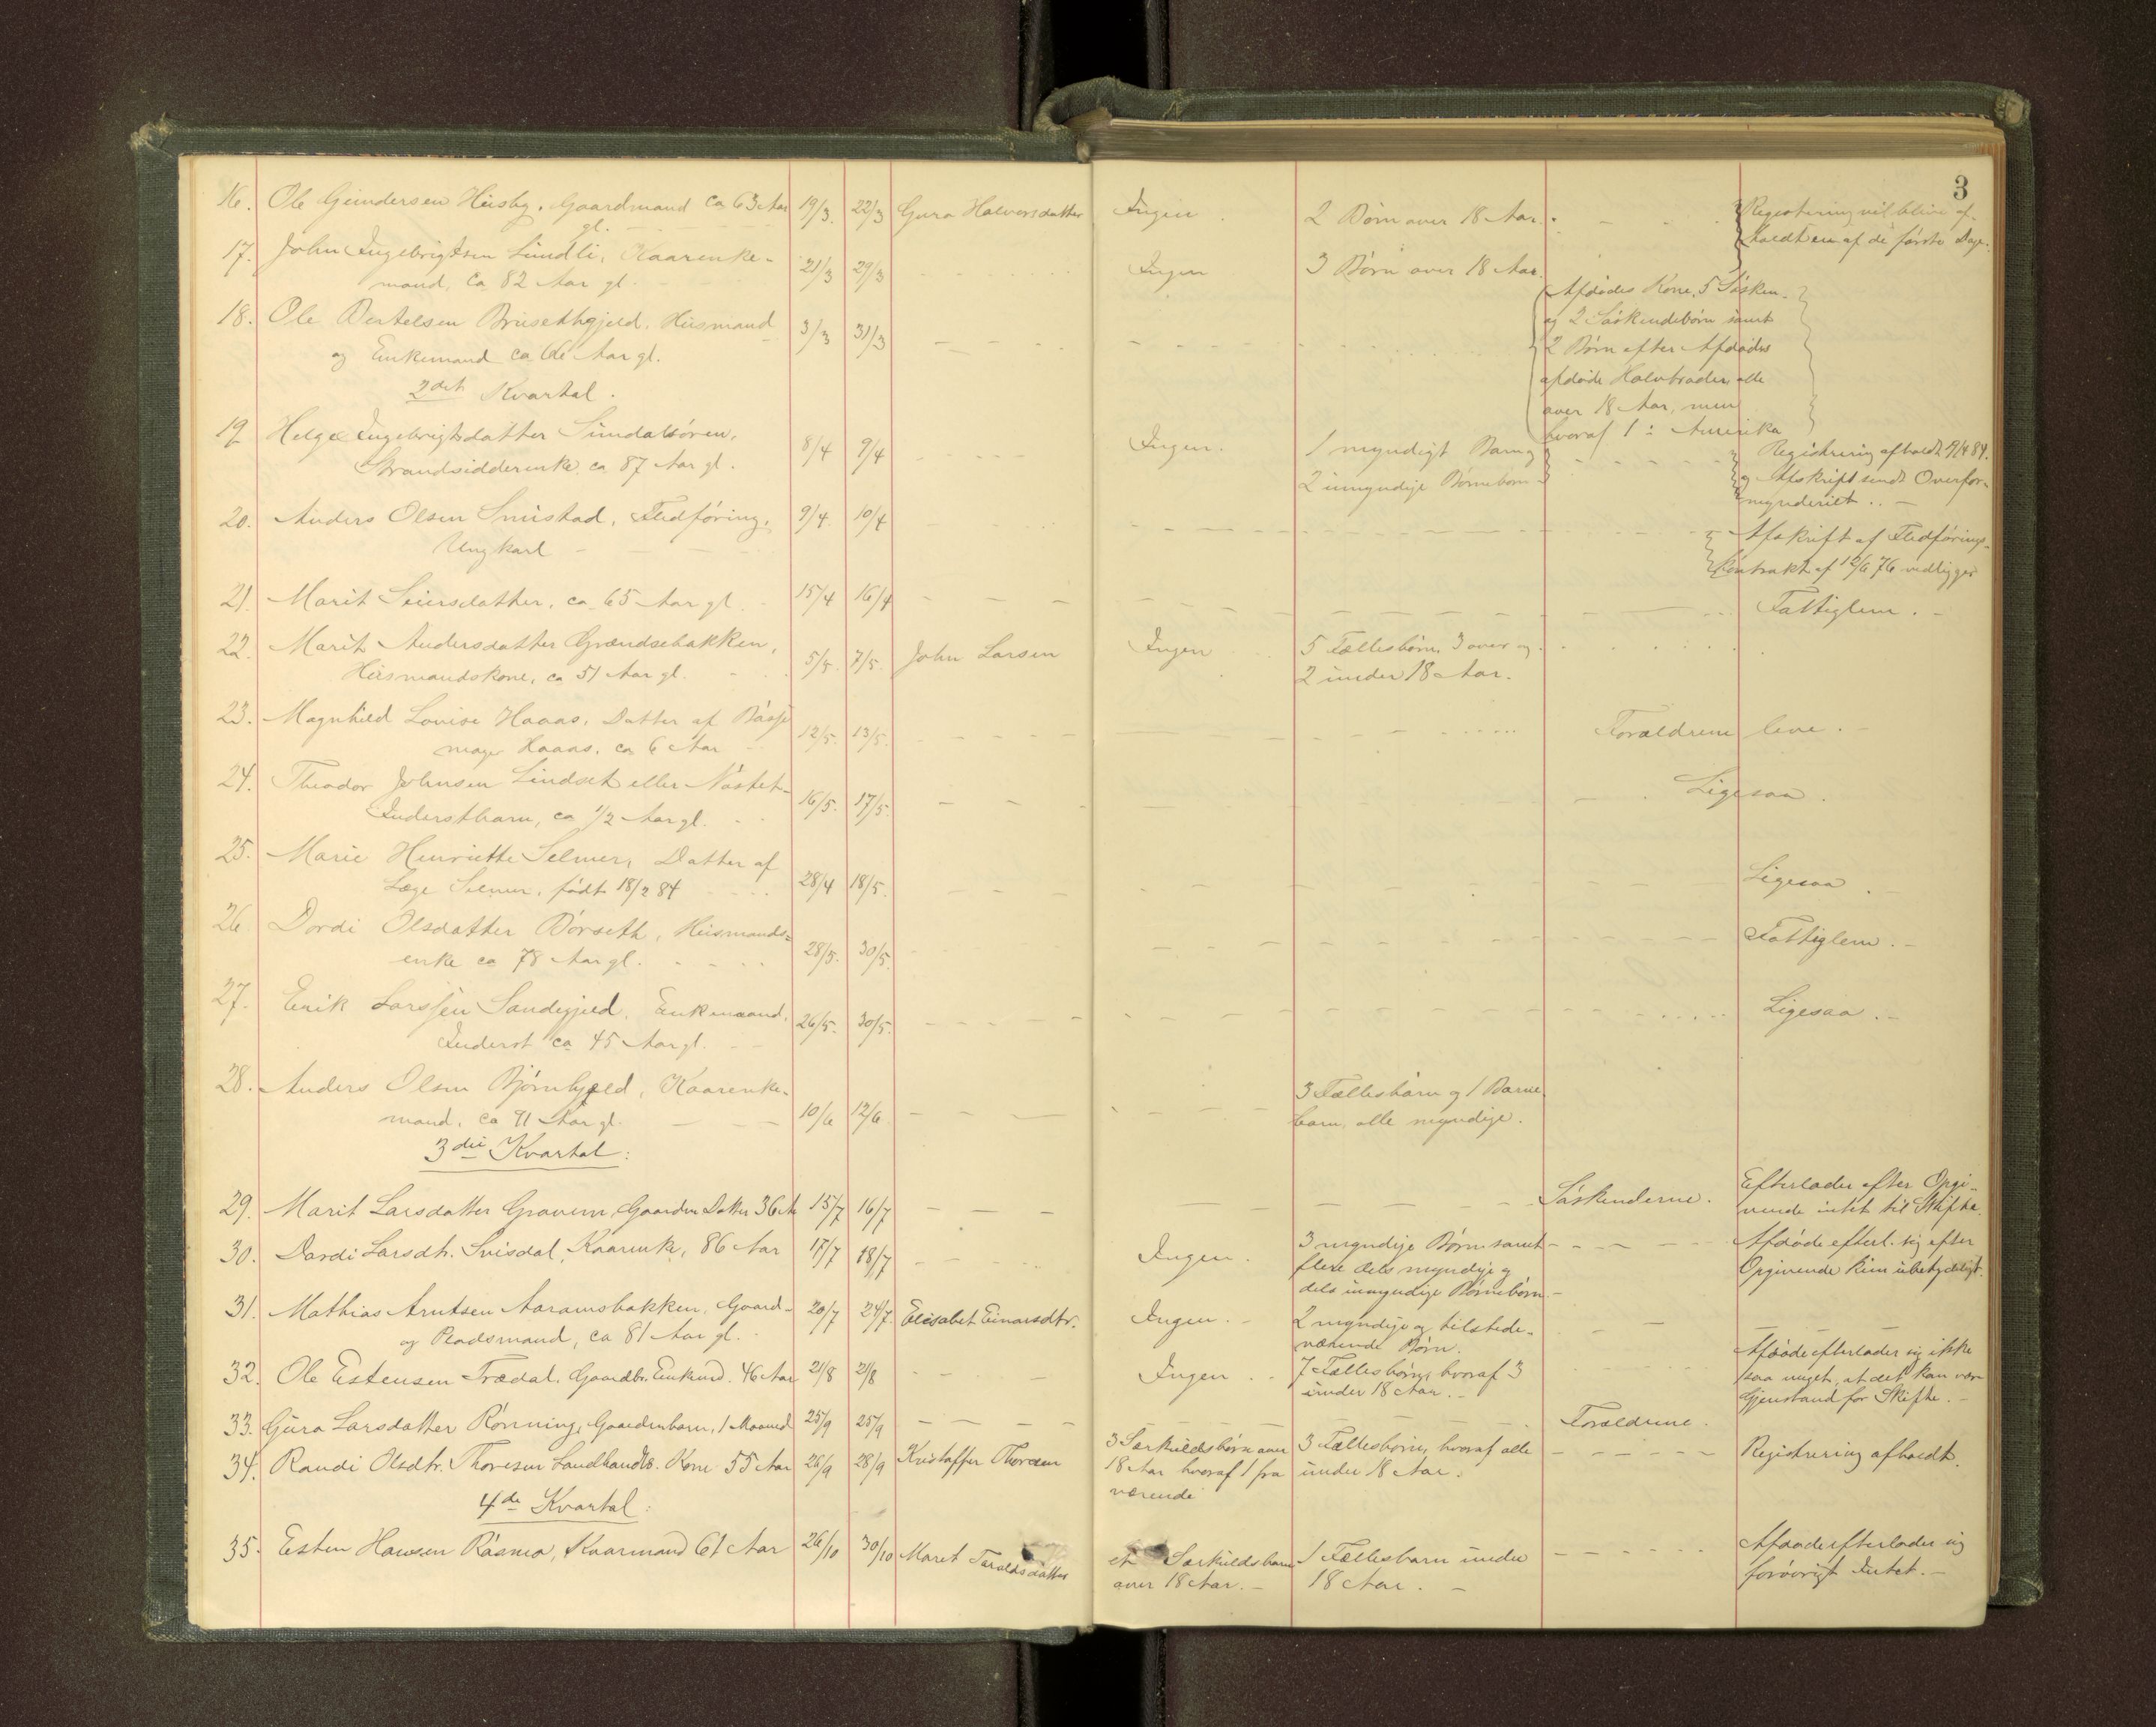 3
16. Ole Gundersen Husby. Gaardmand ca 63 Aar gl. 19/3. 22/3 Guro Halvorsdatter Ingen. 2 Børn over 18 Aar. Registrering vil blive af-
holdt en af de første Dage.
17. John Ingebrigtsen Lundli, Kaarenke- 21/3 29/3 Ingen 3 Børn over 18 Aar.
mand, ca 82 Aar gl.
18. Ole Bertelsen Brusethgjeld. Husmand 3/3 31/3
og Enkemand ca 66 Aar gl.
Afdødes Kone, 5 Søsken-
og 2 Søskendebørn samt
2 Børn efter Afdødes
afdøde Halvbroder, alle
over 18 Aar, men
hvoraf 1 i Amerika
2det Kvartal.
19. Helge Ingebrigtsdatter Sundalsøren, 8/4 9/4 Ingen. 1 myndigt Barn og Registrering afholdt 9/4 84.
Strandsidderenke ca 87 Aar gl. 2 umyndige Børnebørn og Afskrift sendt Overfor-
mynderiet.
20. Anders Olsen Snustad, Fledføring, 9/4. 10/4 Afskrift af Fledførings-
Ungkarl Kontrakt af 12/6 76 vedligger
21. Marit Siversdatter, ca 65 Aar gl. 15/4 16/4 Fattiglem.
22. Marit Andersdatter Grændsebakken, 5/5. 7/5. John Larsen Ingen 5 Fællesbørn, 3 over og
Husmandskone, ca 51 Aar gl. 2 under 18 Aar.
23. Magnhild Lovise Haaas, Datter af Bøsse- 12/5. 13/5. Forældrene leve.
mager Haaas, ca 6 Aar
24. Theodor Johnsen Lindset eller Nøstet- 16/5. 17/5. Ligesaa.
Inderstbarn, ca 1/2 Aar gl.
25. Marie Henriette Selmer, Datter af 28/4 18/5. Ligesaa.
Læge Selmer, født 18/2 84
26. Dordi Olsdatter Børseth, Husmands- 28/5. 30/5. Fattiglem.
enke ca 78 Aar gl.
27. Erik Larssen Sandegjeld. Enkemand. 26/5. 30/5. Ligesaa.
Inderst ca 45 Aar gl.
28. Anders Olsen Bjørnhjeld, Kaarenke- 10/6 12/6 3 Fællesbørn og 1 Barne-
mand, ca 91 Aar gl. barn, alle myndige.
3die Kvartal:
29. Marit Larsdatter Gravem, Gaardm. Datter 36 A 15/7 16/7 Søskenderne. Efterlader efter Opgi-
vende intet til Skifte.
30. Dordi Larsdtr. Svisdal, Kaarenke, 86 Aar 17/7 18/7 Ingen. 3 myndige Børn samt Afdøde efterl. sig efter
flere dels myndige og Opgivende kun ubetydeligt.
dels umyndige Børnebørn.
31. Mathias Arntsen Aaramsbakken, Gaard- 20/7 24/7. Elisabet Einarsdtr. Ingen. 2 myndige og tilstede-
og Pladsmand, ca 81 Aar gl. værende Børn.
32. Ole Estensen Trædal. Gaardbr. Enkmd. 46 Aar 21/8 21/8 Ingen 7 Fællesbørn, hvoraf 3 Afdøde efterlader sig ikke
under 18 Aar. saa meget, at det kan være
Gjenstand for Skifte.
33. Gura Larsdatter Rønning, Gaardmbarn, 1 Maaned 25/9 25/9 Forældrene.
34. Randi Olsdtr. Thoresen Landhandls. Kone 55 Aar 26/9 28/9 Kristoffer Thoresen 3 Særkuldsbørn over 3 Fællesbørn, hvoraf alle Registrering afholdt.
18 Aar hvoraf 1 fra- under 18 Aar.
værende
4de Kvartal:
35. Esten Hansen Røsmo, Kaarmand 61 Aar 26/10 30/10 Maret Taraldsdatter et Særkuldsbarn 1 Fællesbarn under Afdøde efterlader sig
over 18 Aar. 18 Aar. forøvrigt Intet.